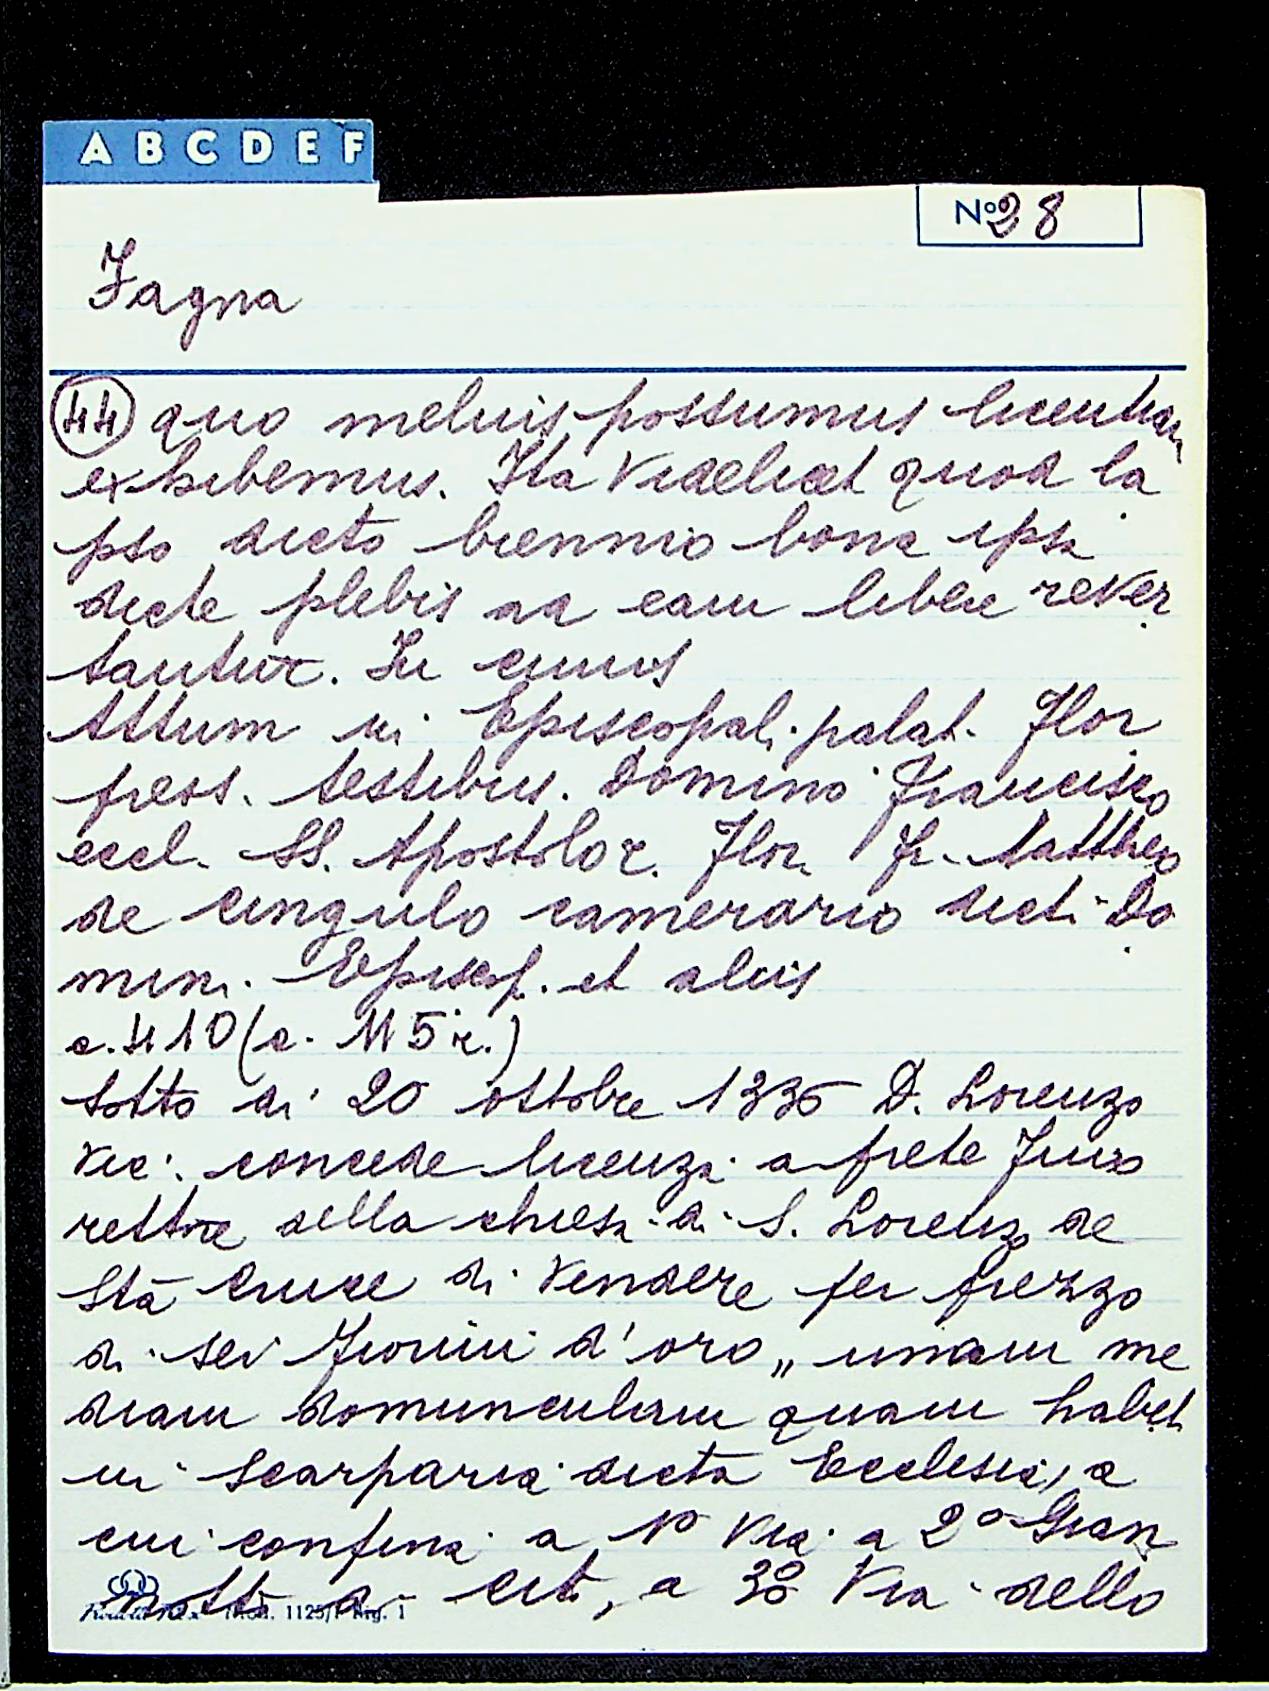 A B C D E F
Nº 28
Fagna
44 quo melius possumus licentiam
exhibemus. Ita videlicet quod la
pso dicto biennio bona ipsa
dicte plebis ad eam libere rever
tantur. In cuius
Attum in Episcopal. palat. Flor
pres. testibus. Domino Francisco
eccl. SS. Apostolor. Flor. Fr. Mattheo
de Cingulo camerario dicti Do
mini. Episcop. et aliis
c. 410 (c. 115 r.)
Sotto di 20 ottobre 1336 D. Lorenzo
Vic. concede licenza a prete
rettore della chiesa di S. Lorenzo de
Sta Cruce di vendere per prezzo
di sei fiorini d'oro „ unam me
diam domunculam quam habet
in Scarparia dicta Ecclesia, a
cui confina a 1º Via a 2º Gian
di Cit, a 3º Via dello
Mod. 1125/1 Rig. 1